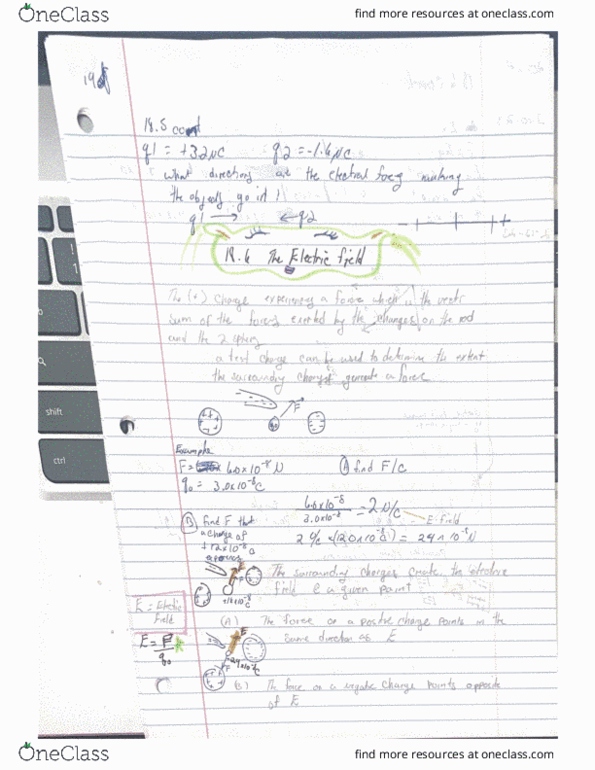 OneClass
find more resources at oneclass.com
18.5 cont
q1 = +3.2μC q2 = -1.6μC
What directions are the electrical forces making
the objects go in?
q1 → ← q2
18.6 The Electric field
The (+) charge experiences a force which is the vector
sum of the forces exerted by the charges on the rod
and the 2 spheres
a test charge can be used to determine the extent
the surrounding charges generate a force
+ +
F
q0
shift
ctrl
Example
F = 6.0x10⁻⁸ N (A) find F/C
q0 = 3.0x10⁻⁸C
6.0x10⁻⁸ / 3.0x10⁻⁸ = 2 N/C
E-field
(B) find F that
a charge of
+12x10⁻⁸ C
2 N/C (12.0x10⁻⁸) = 24x10⁻⁸ N
The surrounding charges create the electric
field @ a given point
E = Electric
Field
(A) The force on a positive charge points in the
same direction as E
E = F
q0
(B) The force on a negative charge points opposite
of E
OneClass
find more resources at oneclass.com